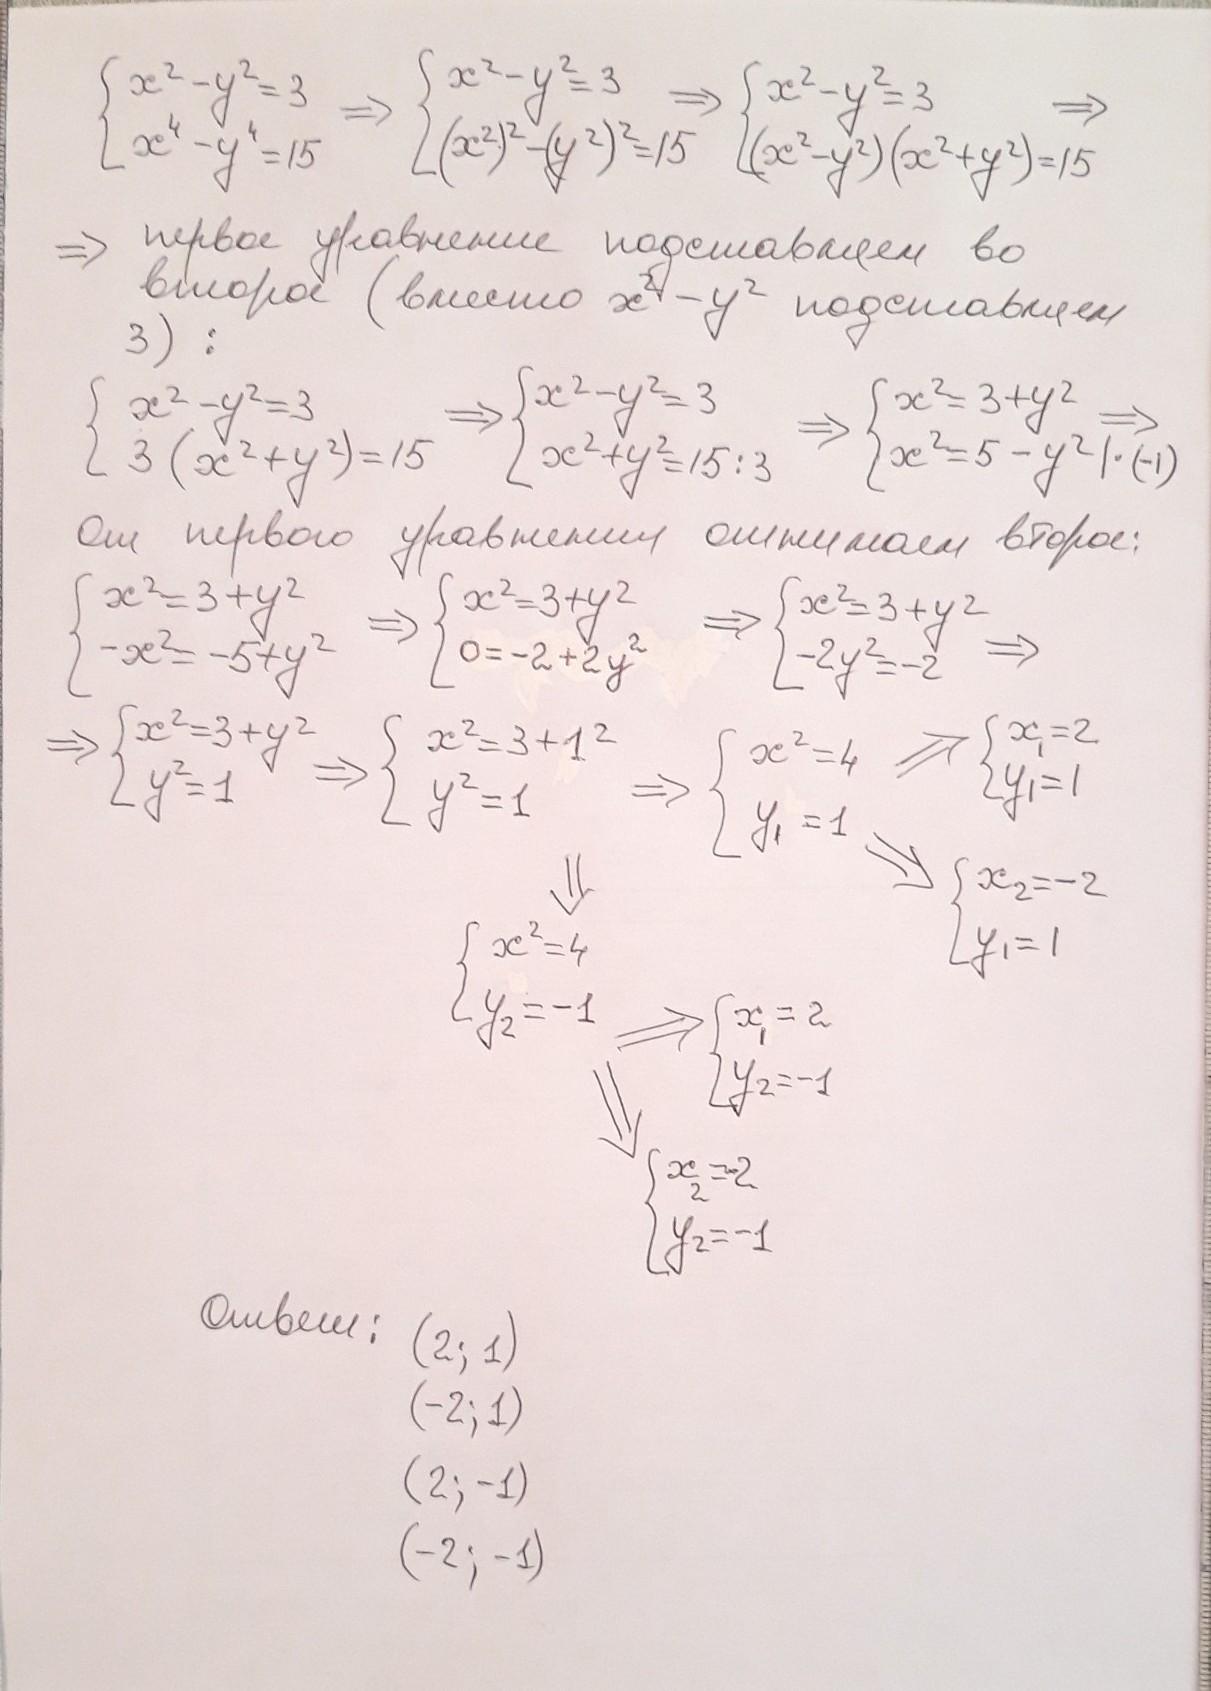 {x²-y²=3 ⇒ {x²-y²=3 ⇒ {x²-y²=3 ⇒
{x⁴-y⁴=15 {(x²)²-(y²)²=15 {(x²-y²)(x²+y²)=15
⇒ первое уравнение подставляем во
второе (вместо x²-y² подставляем
3) :
{x²-y²=3 ⇒ {x²-y²=3 ⇒ {x²=3+y² ⇒
{3(x²+y²)=15 {x²+y²=15:3 {x²=5-y² |·(-1)
От первого уравнения отнимаем второе:
{x²=3+y² ⇒ {x²=3+y² ⇒ {x²=3+y² ⇒
{-x²=-5+y² {0=-2+2y² {-2y²=-2
⇒ {x²=3+y² ⇒ {x²=3+1² ⇒ {x²=4 ⇒ {x₁=2
{y²=1 {y²=1 {y₁=1 {y₁=1
⇓ ⇒ {x₂=-2
{y₁=1
{x²=4
{y₂=-1 ⇒ {x₁=2
{y₂=-1
⇓ {x₂=-2
{y₂=-1
Ответ: (2; 1)
(-2; 1)
(2; -1)
(-2; -1)